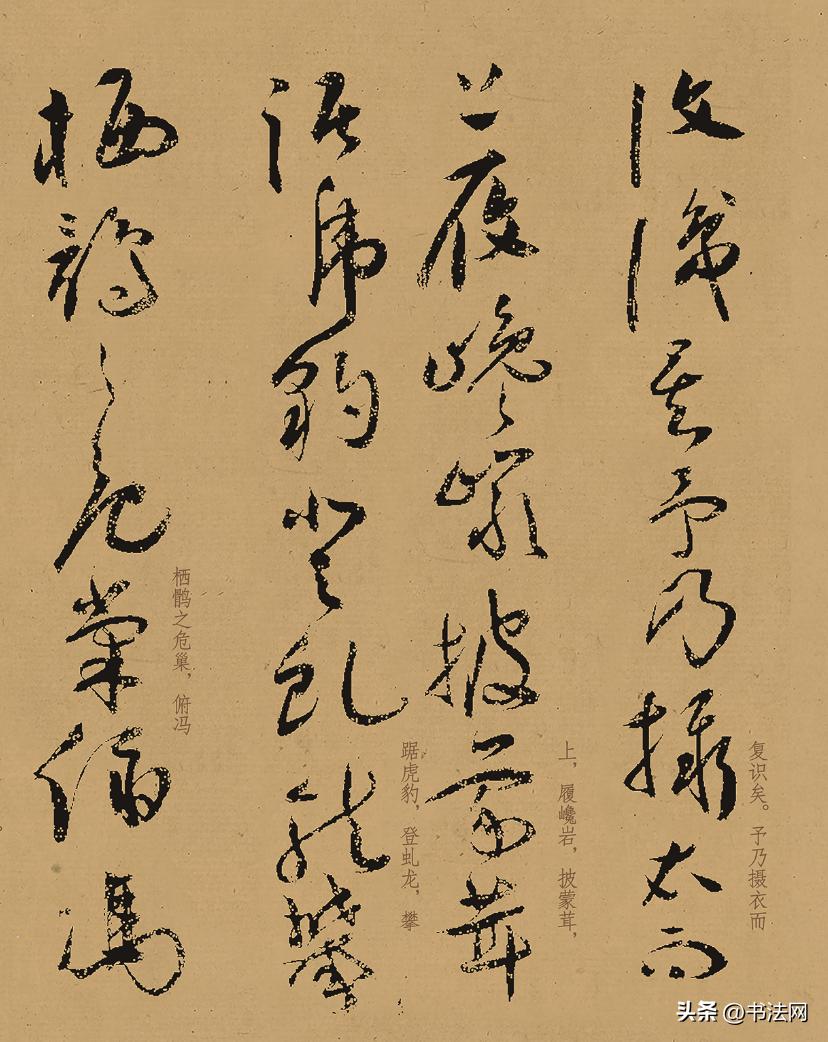 復識矣予乃攝衣而
复识矣。予乃摄衣而
上履巉巖披蒙茸
上，履巉岩，披蒙茸，
踞虎豹登虬龍攀
踞虎豹，登虬龙，攀
栖鶻之危巢俯馮
栖鹘之危巢，俯冯
头条 @书法网